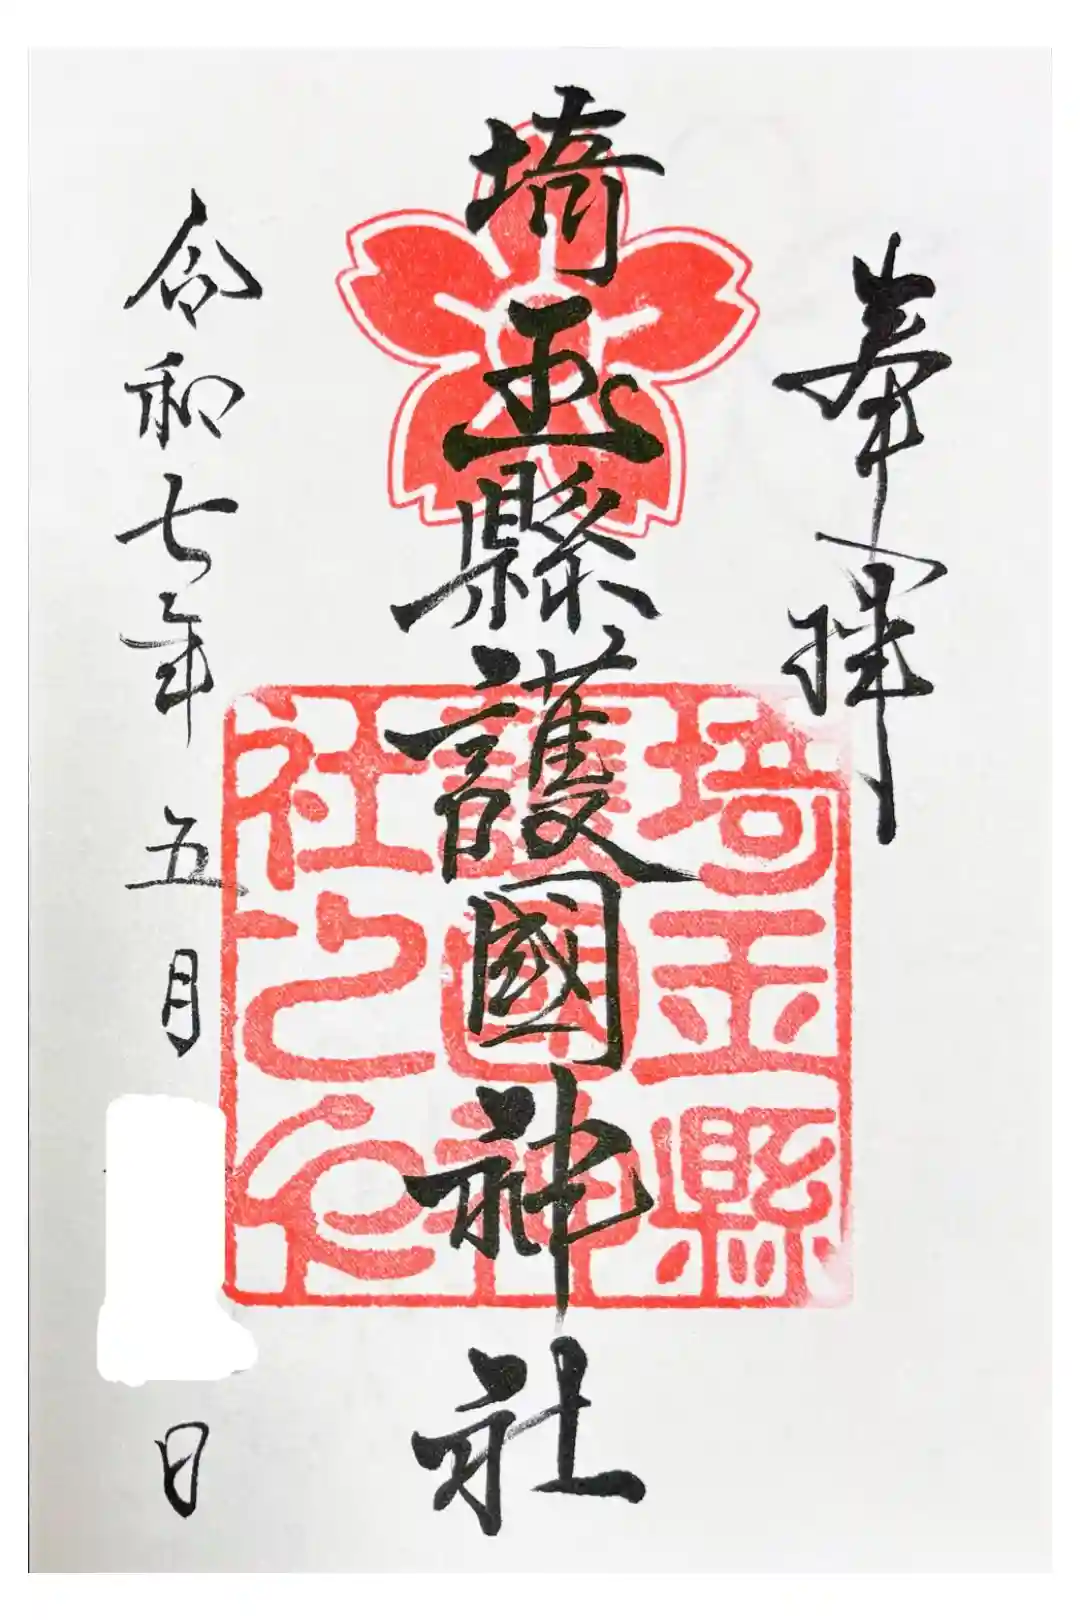 奉拝
埼玉縣護國神社
埼玉縣
護國神
社之印
令和七年五月 日